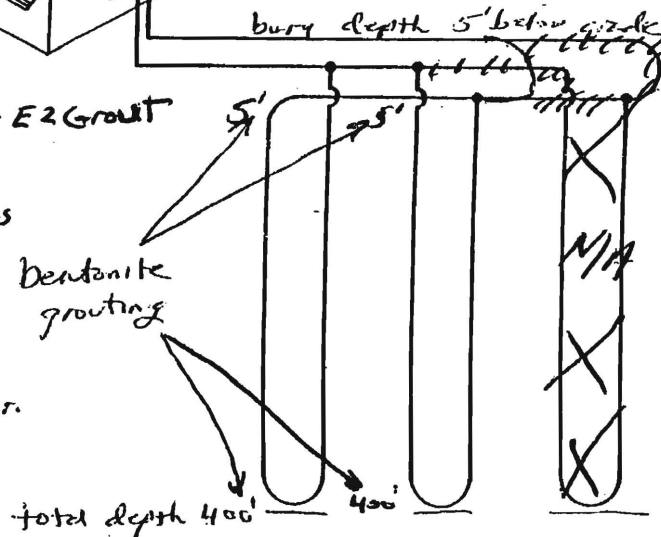 bury depth 5' below grade
E Z Grout
5'
5'
s
bentonite
grouting
N/A
r.
400'
total depth 400'